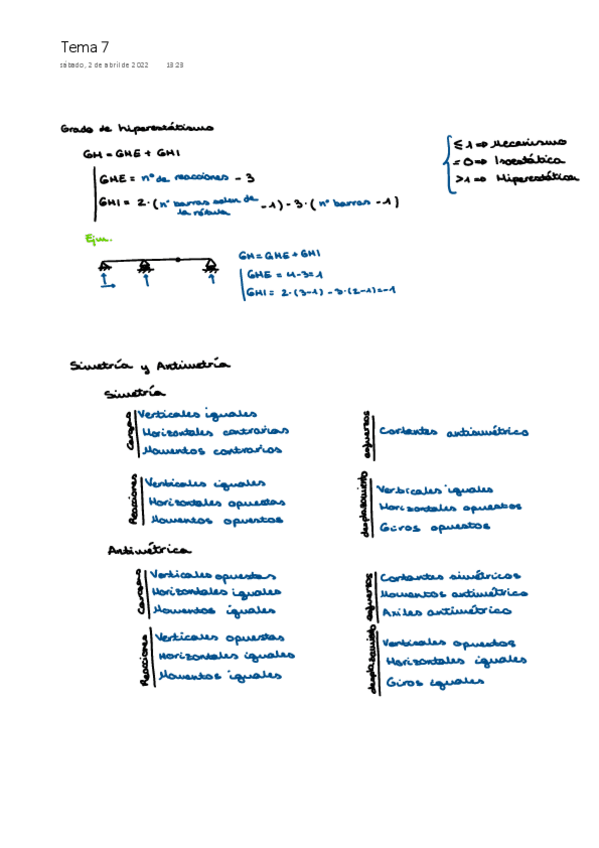 Tema 7
sábado, 2 de abril de 2022 18:28
Grado de hiperestátismo
GH = GHE + GHI
GHE = nº de reacciones - 3
GHI = 2 · ( nº barras salen de la rótula - 1) - 3 · ( nº barras - 1 )
≤ 1 => Mecanismo
= 0 => Isostática
> 1 => Hiperestática
Ejm.
GH = GHE + GHI
GHE = 4 - 3 = 1
GHI = 2·(3-1) - 3·(2-1) = -1
Simetría y Antimetría
Simetría
Cargas
Verticales iguales
Horizontales contrarias
Momentos contrarios
esfuerzos
Cortantes antisimétrico
Reacciones
Verticales iguales
Horizontales opuestas
Momentos opuestos
desplazamiento
Verticales iguales
Horizontales opuestos
Giros opuestos
Antimétrica
Cargas
Verticales opuestas
Horizontales iguales
Momentos iguales
esfuerzos
Cortantes simétricos
Momentos antimétrico
Axiles antimétrico
Reacciones
Verticales opuestas
Horizontales iguales
Momentos iguales
desplazamiento
Verticales opuestos
Horizontales iguales
Giros iguales